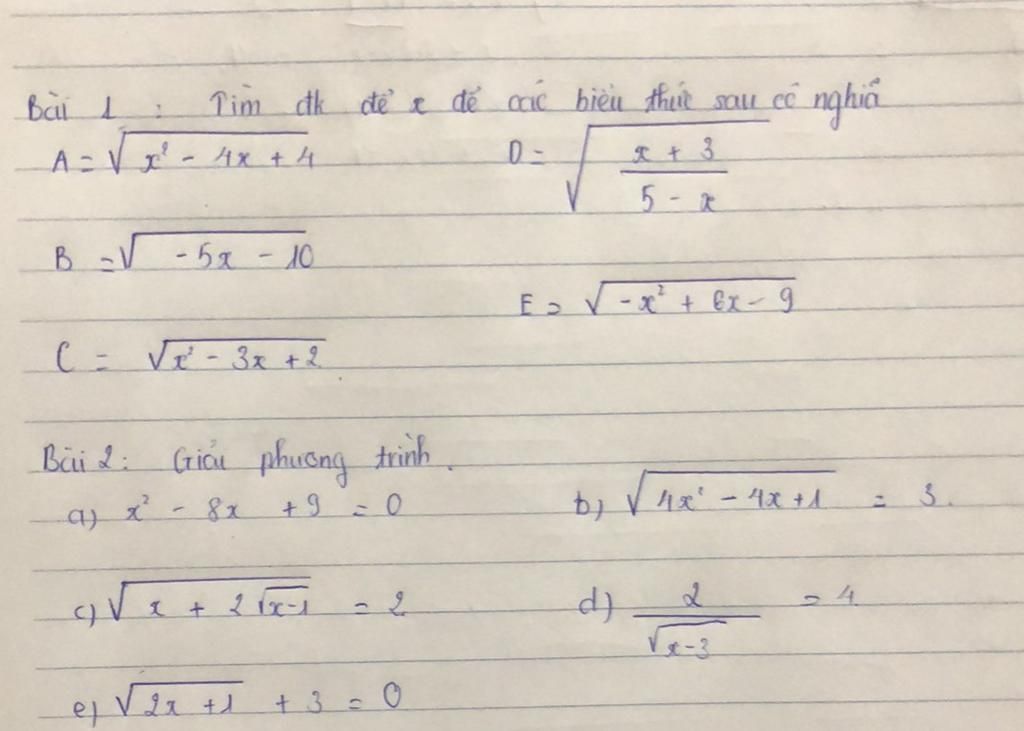 Bài 1 : Tìm đk để x để các biểu thức sau có nghĩa
A = √(x² - 4x + 4)
D = √((x + 3)/(5 - x))
B = √(-5x - 10)
E = √(-x² + 6x - 9)
C = √(x² - 3x + 2)
Bài 2 : Giải phương trình.
a) x² - 8x + 9 = 0
b) √(4x² - 4x + 1) = 3.
c) √(x + 2√(x-1)) = 2
d) 2/√(x-3) = 4
e) √(2x + 1) + 3 = 0